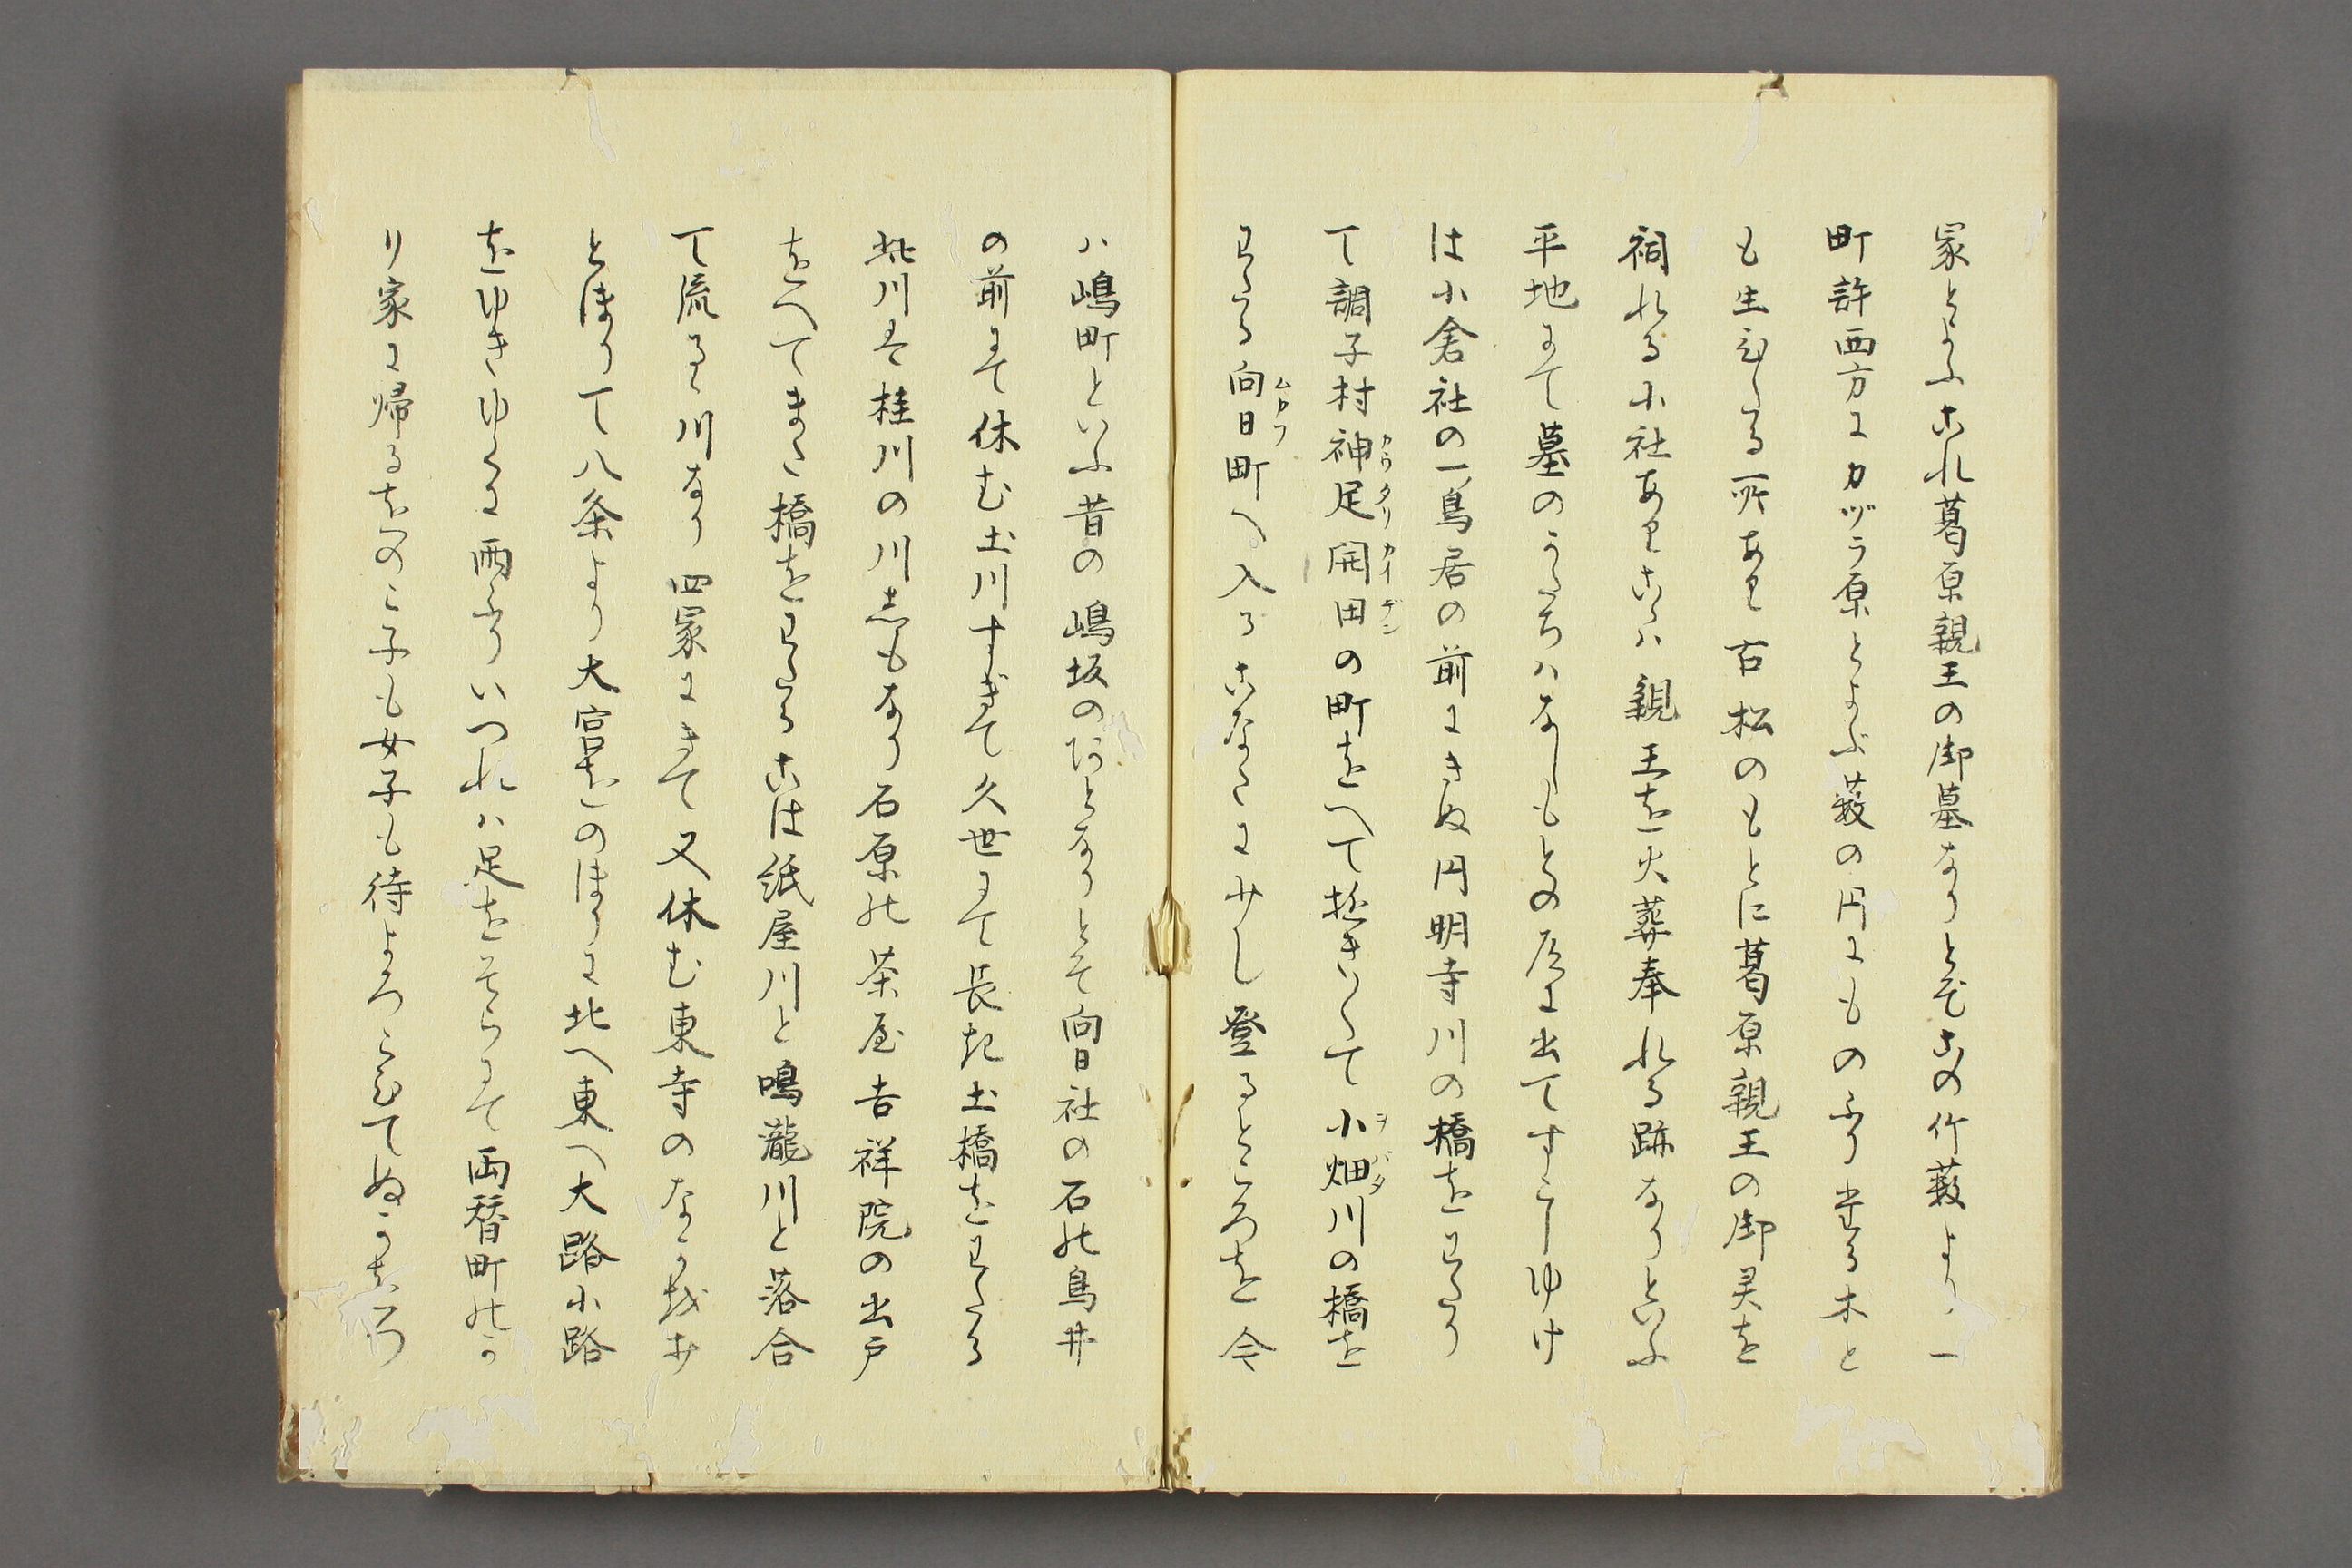 冢とよふこれ葛原親王の御墓なりとぞこの竹薮より一
町許西方にカヅラ原とよぶ薮の内にものふり堂る木と
も生立たる所あり古松のもとに葛原親王の御灵を
祠れる小社ありこゝハ親王を火葬奉れる跡なりといふ
平地にて墓のかたちハなしもとの道に出てすこしゆけ
は小倉社の一鳥居の前にきぬ円明寺川の橋をわたり
て調子村神足開田の町をへて猶きつゝて小畑川の橋を
カウタリ カイデン ヲバタ
わたる向日町へ入るこなたに少し登るところを今
ムカフ
ハ嶋町といふ昔の嶋坂のあとなりとそ向日社の石の鳥井
の前にて休む土川すぎて久世にて長き土橋をわたる
此川は桂川の川しもなり石原の茶屋吉祥院の出戸
をへてまた橋をわたるこは紙屋川と鳴瀧川と落合
て流るゝ川なり四冢にきて又休む東寺のなかをみ
とほりて八条より大宮をのほりに北へ東へ大路小路
をゆきゆくに雨ふりいつれハ足をそらにて両替町のか
り家に帰るをのこ子も女子も待よろこひて